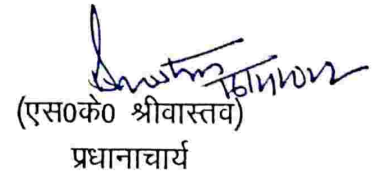 (एस0के0 श्रीवास्तव)
प्रधानाचार्य